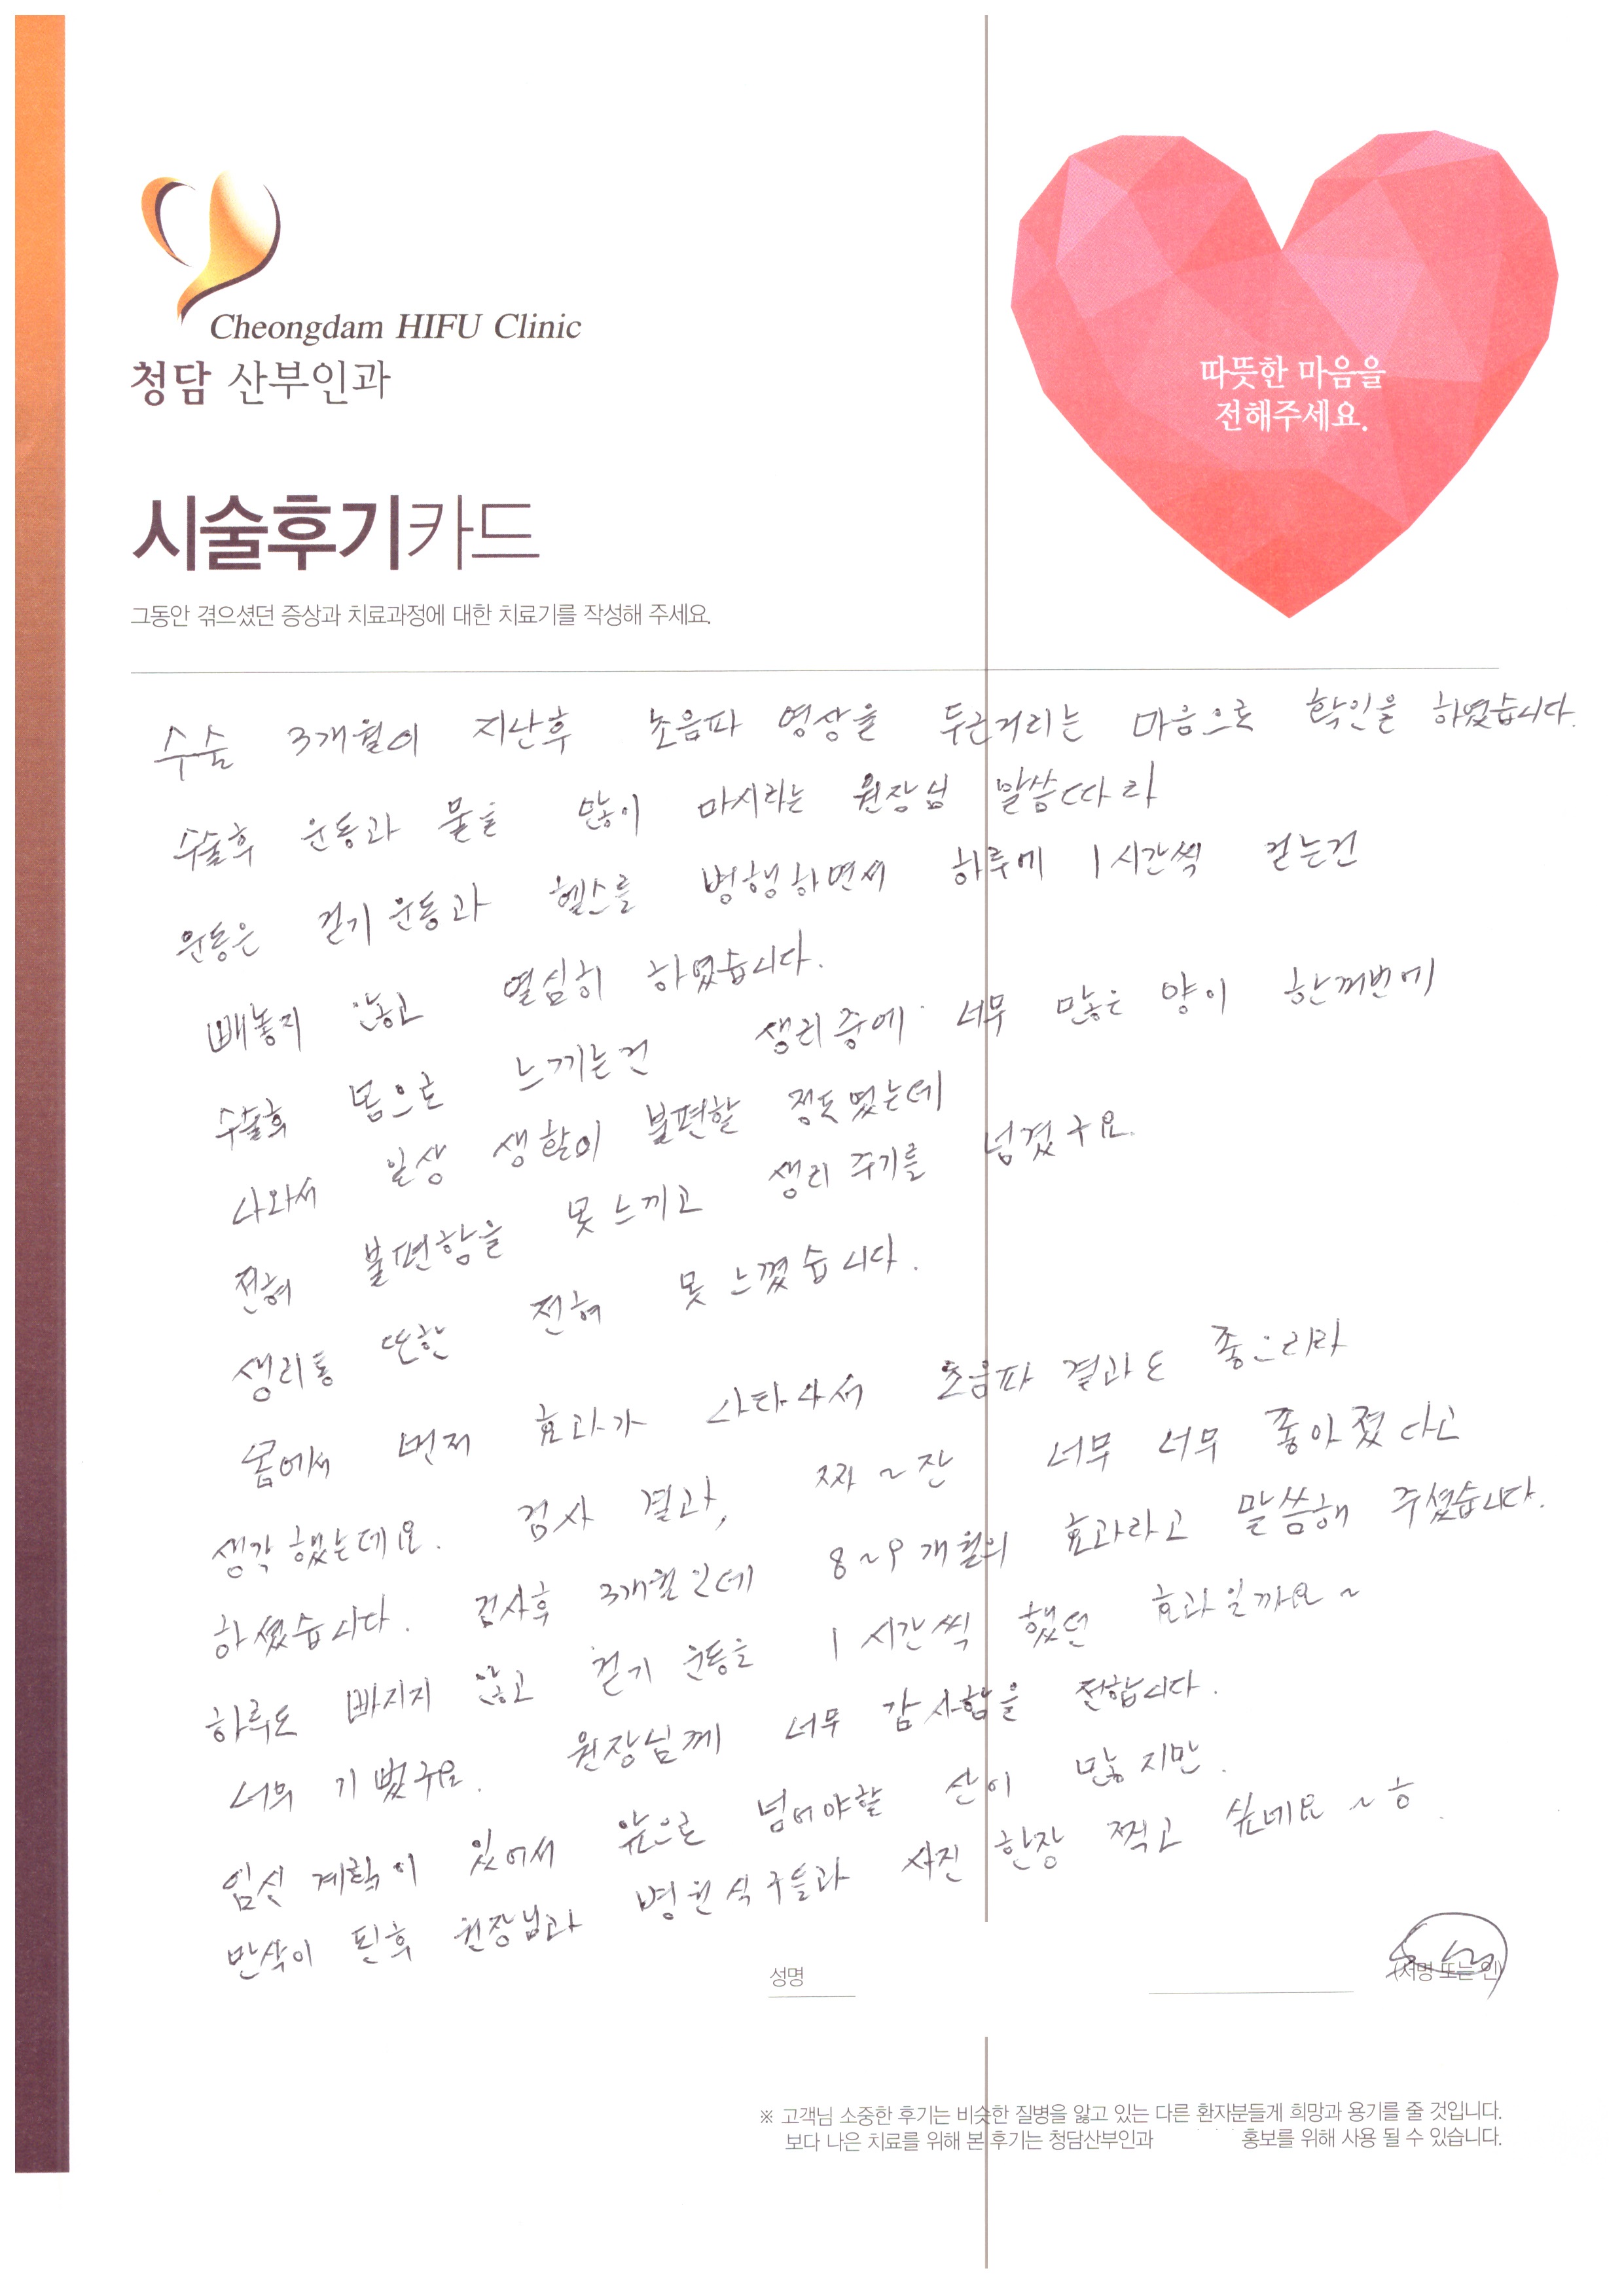 Cheongdam HIFU Clinic
청담 산부인과
따뜻한 마음을
전해주세요.
시술후기카드
그동안 겪으셨던 증상과 치료과정에 대한 치료기를 작성해 주세요.
수술 3개월이 지난후 초음파 영상을 두근거리는 마음으로 확인을 하였습니다.
수술후 운동과 물을 많이 마시라는 원장님 말씀따라
운동은 걷기운동과 헬스를 병행하면서 하루에 1시간씩 걷는건
빼놓지 않고 열심히 하였습니다.
수술후 몸으로 느끼는건 생리중에 너무 많은 양이 한꺼번에
나와서 일상 생활이 불편할 정도였는데
전혀 불편함을 못느끼고 생리주기를 넘겼구요.
생리통 또한 전혀 못느꼈습니다.
몸에서 먼저 효과가 나타나서 초음파 결과도 좋으리라
생각했는데요. 검사 결과, 짜~잔 너무 너무 좋아졌다고
하셨습니다. 검사후 3개월인데 8~9개월의 효과라고 말씀해 주셨습니다.
하루도 빠지지 않고 걷기 운동을 1시간씩 했던 효과일까요~
너무 기뻤구요. 원장님께 너무 감사함을 전합니다.
임신 계획이 있어서 앞으로 넘어야할 산이 많지만.
만삭이 된후 원장님과 병원식구들과 사진 한장 찍고 싶네요~ㅎ.
성명 (서명 또는 인)
※ 고객님 소중한 후기는 비슷한 질병을 앓고 있는 다른 환자분들게 희망과 용기를 줄 것입니다.
보다 나은 치료를 위해 본 후기는 청담산부인과 홍보를 위해 사용 될 수 있습니다.